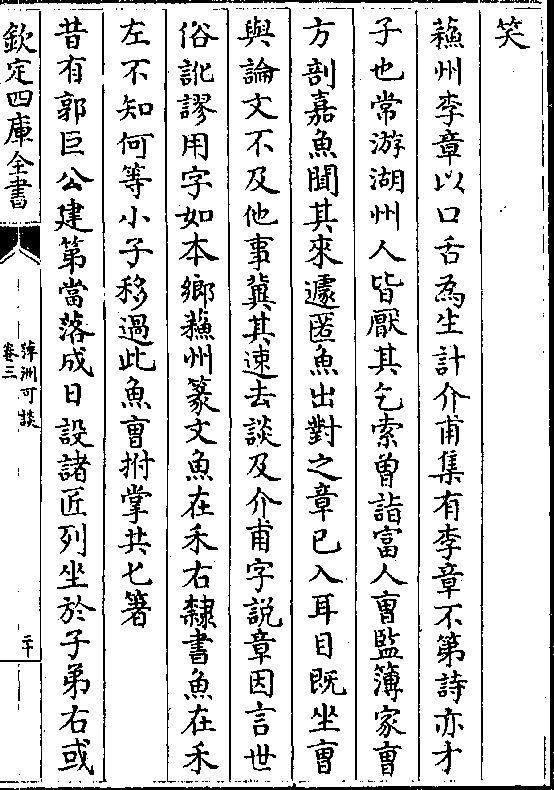 笑
蘇州李章以口舌為生計介甫集有李章不第詩亦才
子也常游湖州人皆厭其乞索曾詣富人曺監簿家曺
方剖嘉魚聞其來遽匿魚出對之章已入耳目既坐曺
與論文不及他事冀其速去談及介甫字説章因言世
俗訛謬用字如本鄉蘓州篆文魚在禾右隸書魚在禾
左不知何等小子移過此魚曺拊掌共匕箸
昔有郭巨公建第當落成日設諸匠列坐於子弟右或
欽定四庫全書
萍洲可談
卷三
二十